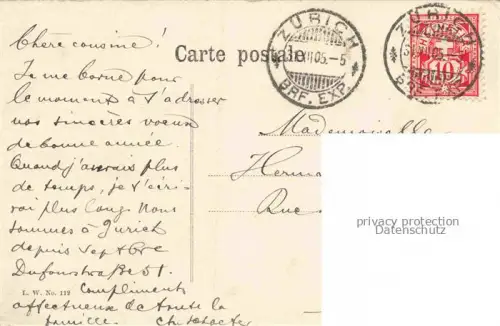 Chère cousine!
Carte postale
Je me borne pour
le moment à t'adresser
nos sincères vœux
de bonne année.
Quand j'aurais plus
de temps, je t'écri-
rai plus long. Nous
sommes à Zurich
depuis Septbre
Dufourstraße 51.
L. W. No. 112
Compliments
affectueux de toute la
famille.
ZÜRICH
05.-5
BRF. EXP.
ZÜRICH
10
Mademoiselle
Herma
Rue
privacy protection
Datenschutz